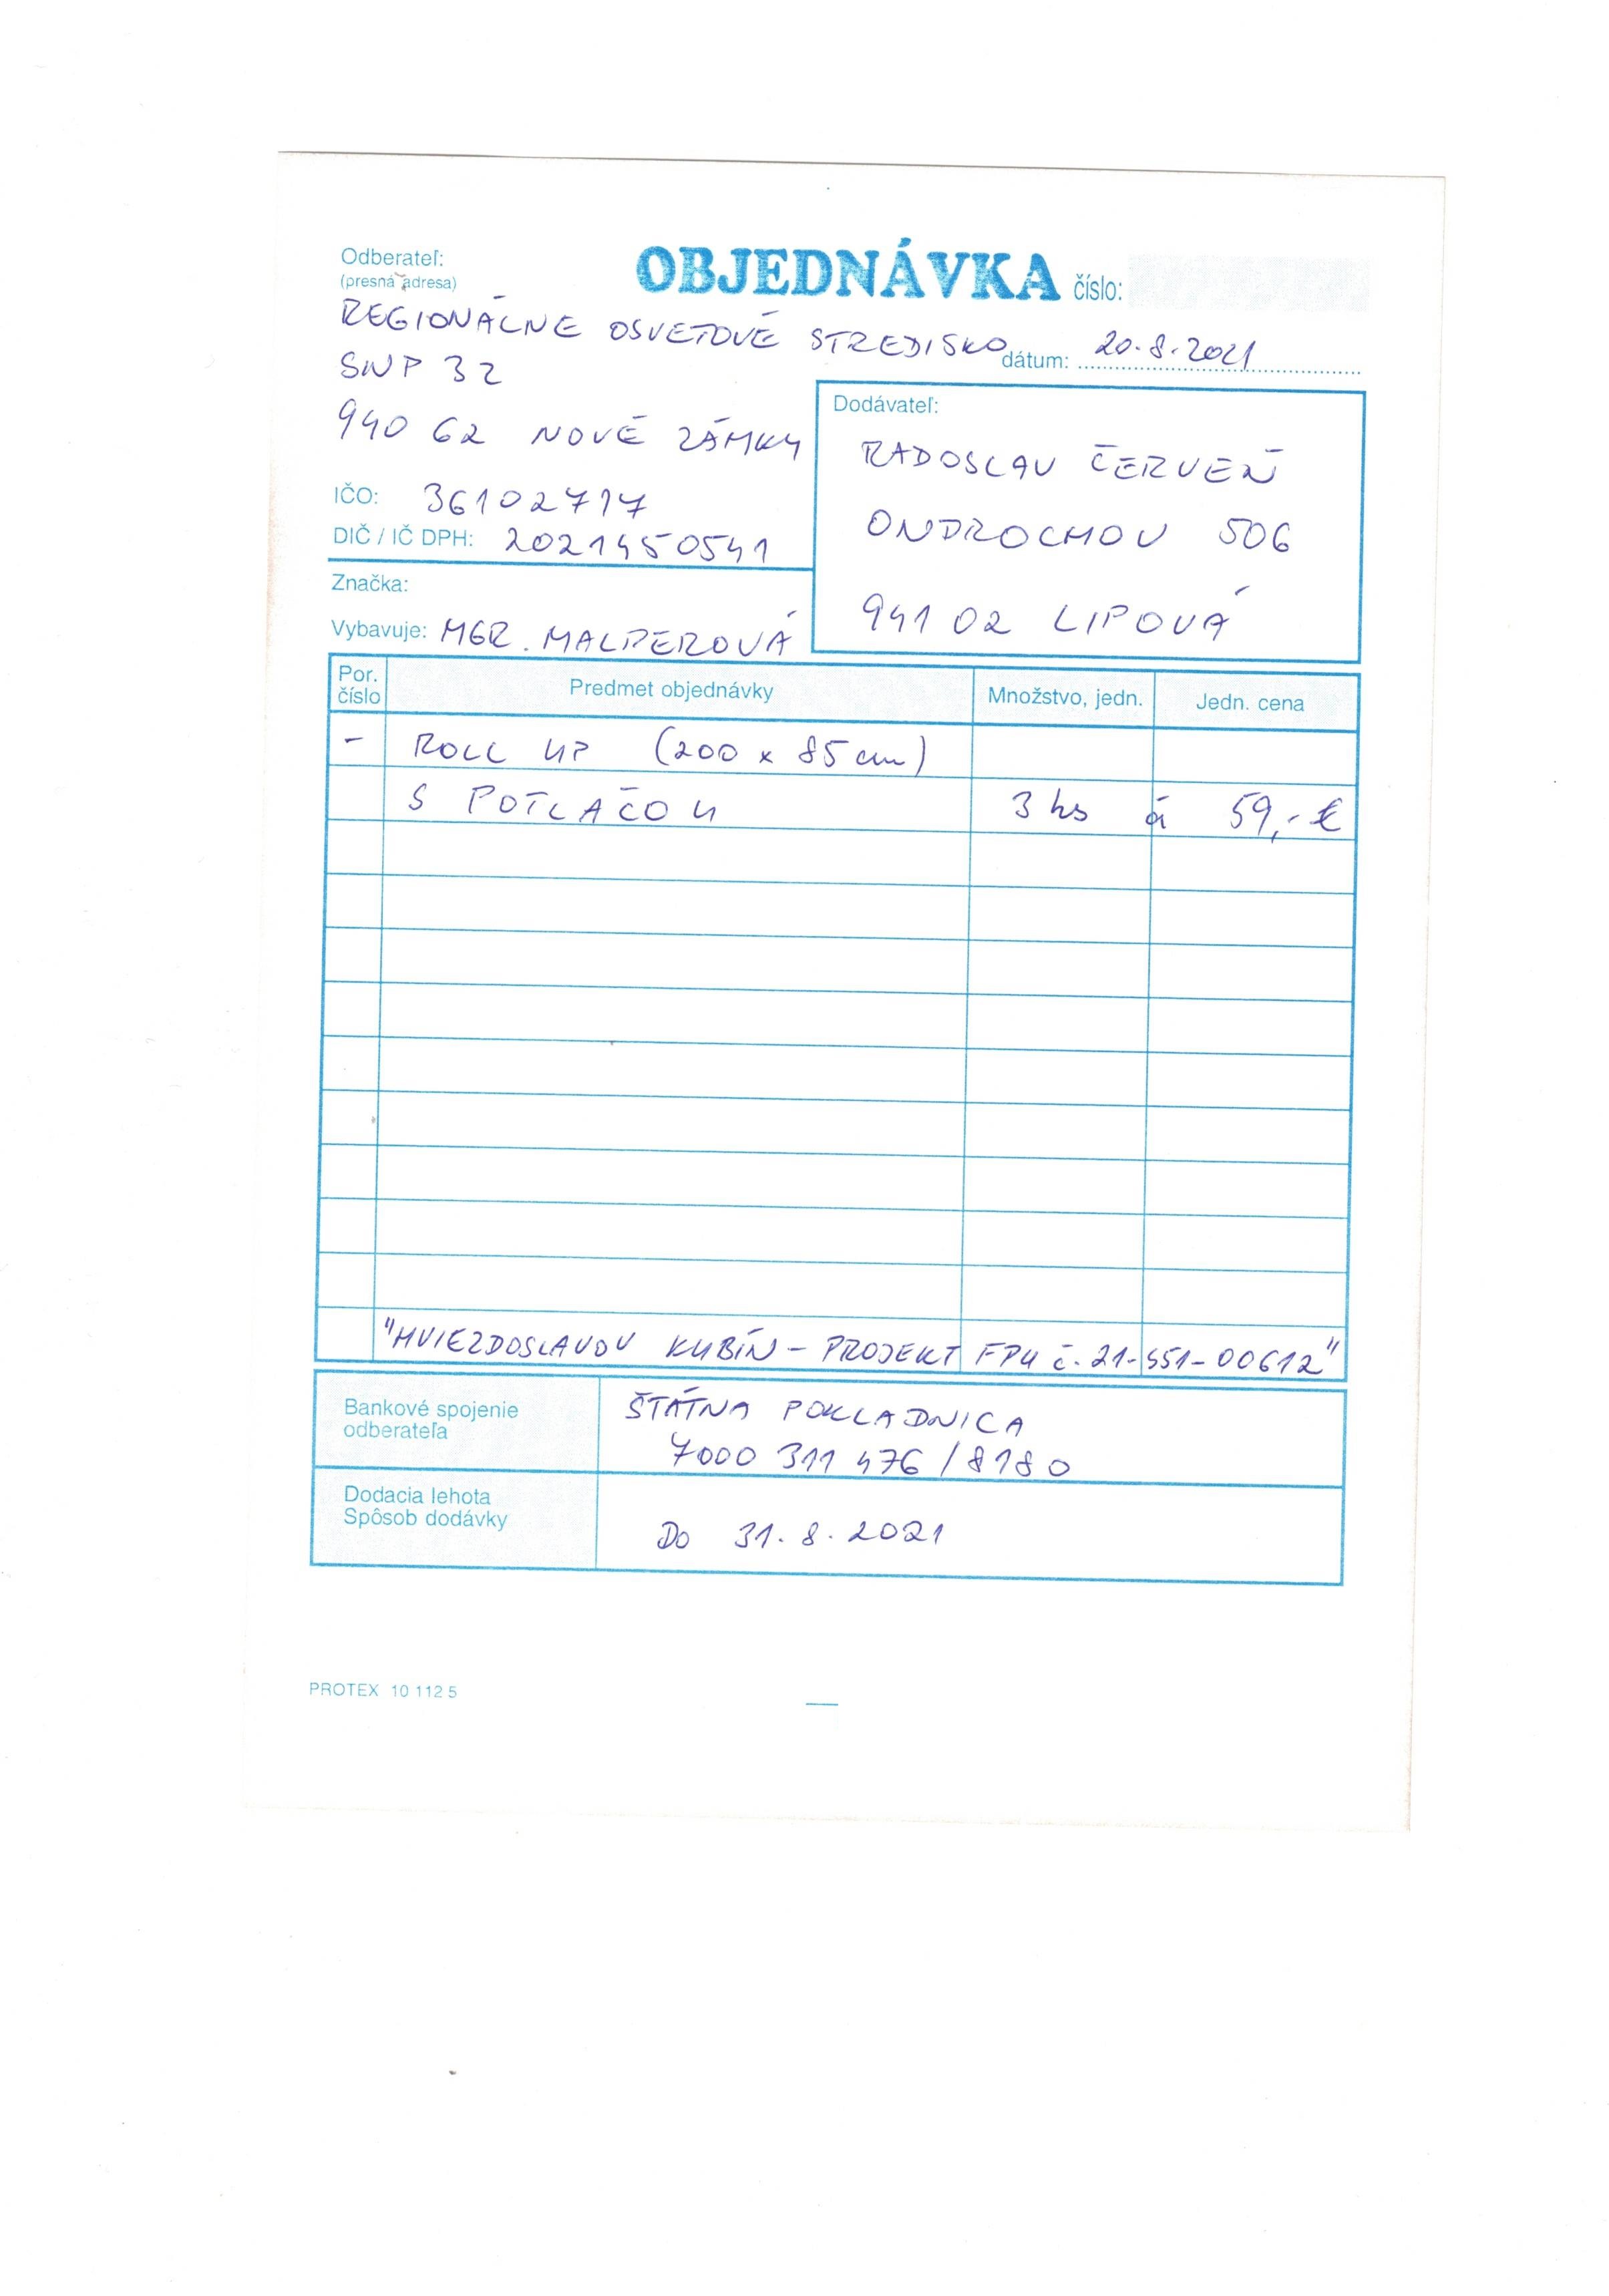 Odberateľ:
(presná adresa)
OBJEDNÁVKA číslo:
REGIONÁLNE OSVETOVÉ STREDISKO
dátum: 20.8.2021
SNP 32
940 62 NOVÉ ZÁMKY
IČO: 36102717
DIČ / IČ DPH: 2021450541
Značka:
Vybavuje: MGR. MALPEROVÁ
Dodávateľ:
RADOSLAV ČERVEŇ
ONDROCHOV 506
941 02 LIPOVÁ
Por. číslo Predmet objednávky Množstvo, jedn. Jedn. cena
- ROLL UP (200 x 85 cm)
S POTLAČOU 3 ks á 59,- €
"HVIEZDOSLAVOV KUBÍN - PROJEKT FPU č. 21-551-00612"
Bankové spojenie
odberateľa
ŠTÁTNA POKLADNICA
7000 311 476 / 8180
Dodacia lehota
Spôsob dodávky
DO 31.8.2021
PROTEX 10 112 5